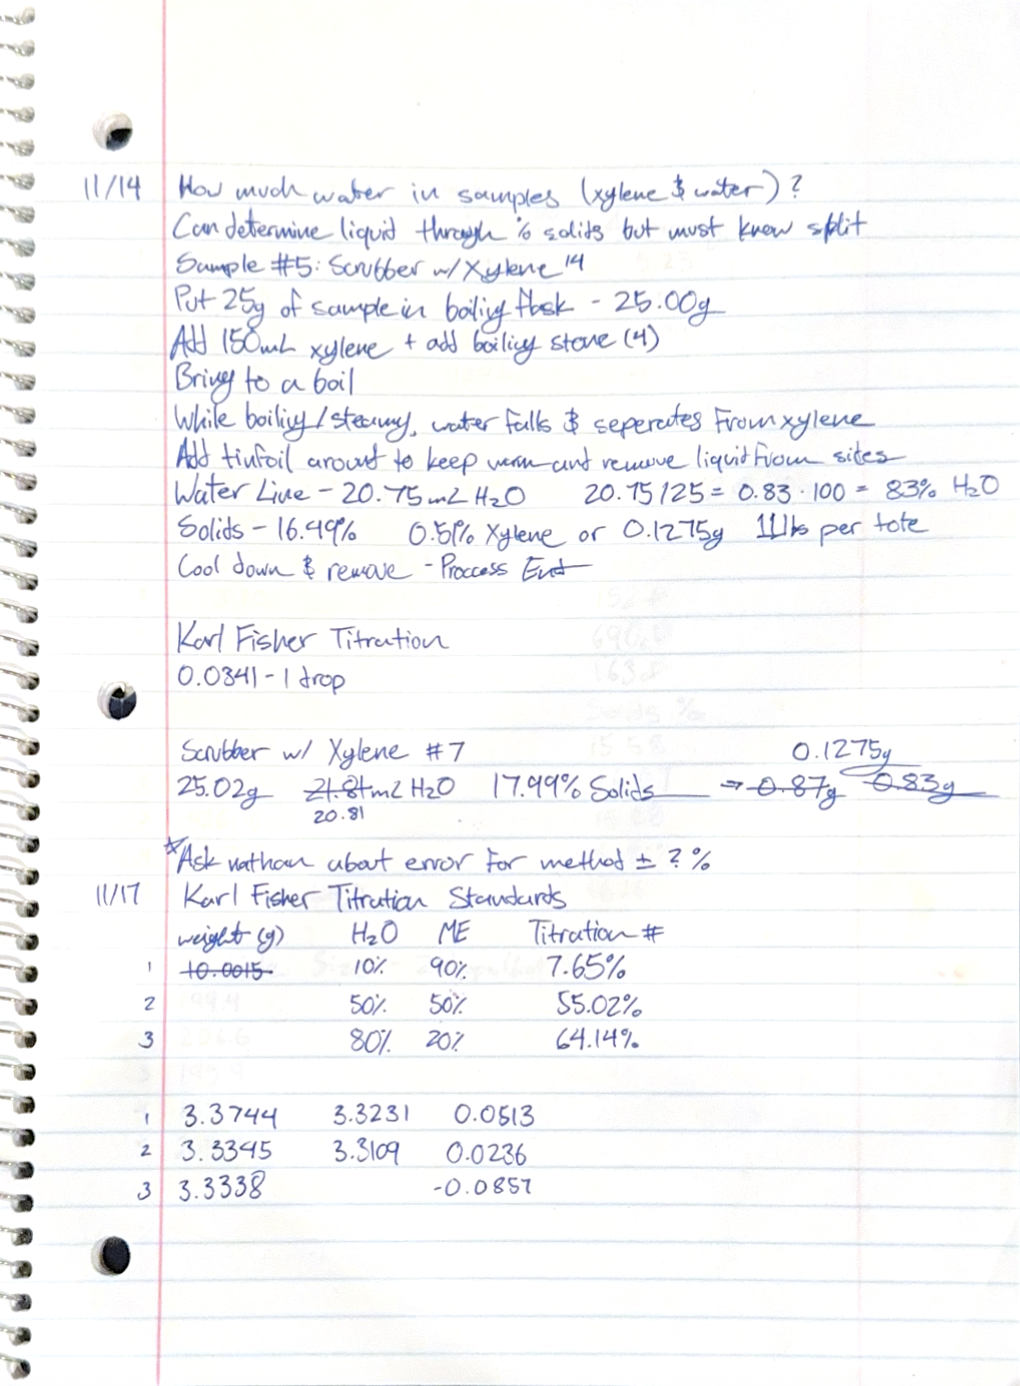 11/14 How much water in samples (xylene & water)?
Can determine liquid through % solids but must know split
Sample #5: Scrubber w/ Xylene 14
Put 25g of sample in boiling flask - 25.00g
Add 150mL xylene + add boiling stone (4)
Bring to a boil
While boiling/steamy, water falls & seperates From xylene
Add tinfoil around to keep warm and remove liquid from sides
Water Line - 20.75mL H₂O 20.75/25 = 0.83 · 100 = 83% H₂O
Solids - 16.49% 0.51% Xylene or 0.1275g 11lbs per tote
Cool down & remove - Proccess End
Karl Fisher Titration
0.0341 - 1 drop
Scrubber w/ Xylene #7 0.1275g
25.02g 21.84mL H₂O 17.99% Solids → 0.87g 0.83g
20.81
*Ask nathan about error for method ± ? %
11/17 Karl Fisher Titration Standards
weight (g) H₂O ME Titration #
1 10.0015 10% 90% 7.65%
2 50% 50% 55.02%
3 80% 20% 64.14%
1 3.3744 3.3231 0.0513
2 3.3345 3.3109 0.0236
3 3.3338 -0.0857